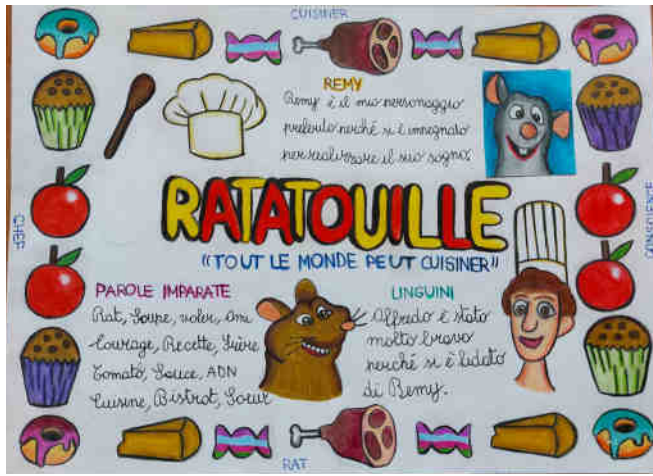 CUISINER
REMY
Remy è il mio personaggio
preferito perché si è impegnato
per realizzare il suo sogno.
RATATOUILLE
"TOUT LE MONDE PEUT CUISINER"
CHEF
CONSCIENCE
PAROLE IMPARATE
Rat, Soupe, voler, Ami
Courage, Recette, Frère
Tomato, Sauce, ADN
Cuisine, Bistrot, Soeur
LINGUINI
Alfredo è stato
molto bravo
perché si è fidato
di Remy.
RAT